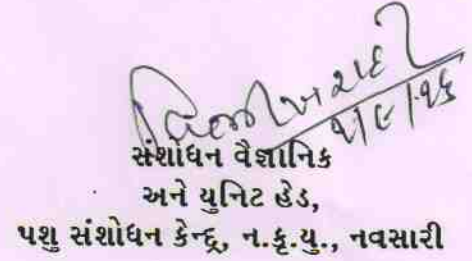 ૨/૯/૧૬
સંશોધન વૈજ્ઞાનિક
અને યુનિટ હેડ,
પશુ સંશોધન કેન્દ્ર, ન.કૃ.યુ., નવસારી